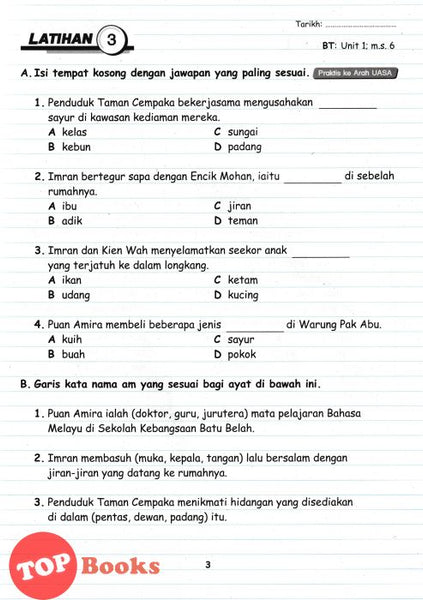 Tarikh: ..............................
LATIHAN 3
BT: Unit 1; m.s. 6
A. Isi tempat kosong dengan jawapan yang paling sesuai. Praktis ke Arah UASA
1. Penduduk Taman Cempaka bekerjasama mengusahakan __________
sayur di kawasan kediaman mereka.
A kelas C sungai
B kebun D padang
2. Imran bertegur sapa dengan Encik Mohan, iaitu __________ di sebelah
rumahnya.
A ibu C jiran
B adik D teman
3. Imran dan Kien Wah menyelamatkan seekor anak __________
yang terjatuh ke dalam longkang.
A ikan C ketam
B udang D kucing
4. Puan Amira membeli beberapa jenis __________ di Warung Pak Abu.
A kuih C sayur
B buah D pokok
B. Garis kata nama am yang sesuai bagi ayat di bawah ini.
1. Puan Amira ialah (doktor, guru, jurutera) mata pelajaran Bahasa
Melayu di Sekolah Kebangsaan Batu Belah.
2. Imran membasuh (muka, kepala, tangan) lalu bersalam dengan
jiran-jiran yang datang ke rumahnya.
3. Penduduk Taman Cempaka menikmati hidangan yang disediakan
di dalam (pentas, dewan, padang) itu.
3
TOP Books